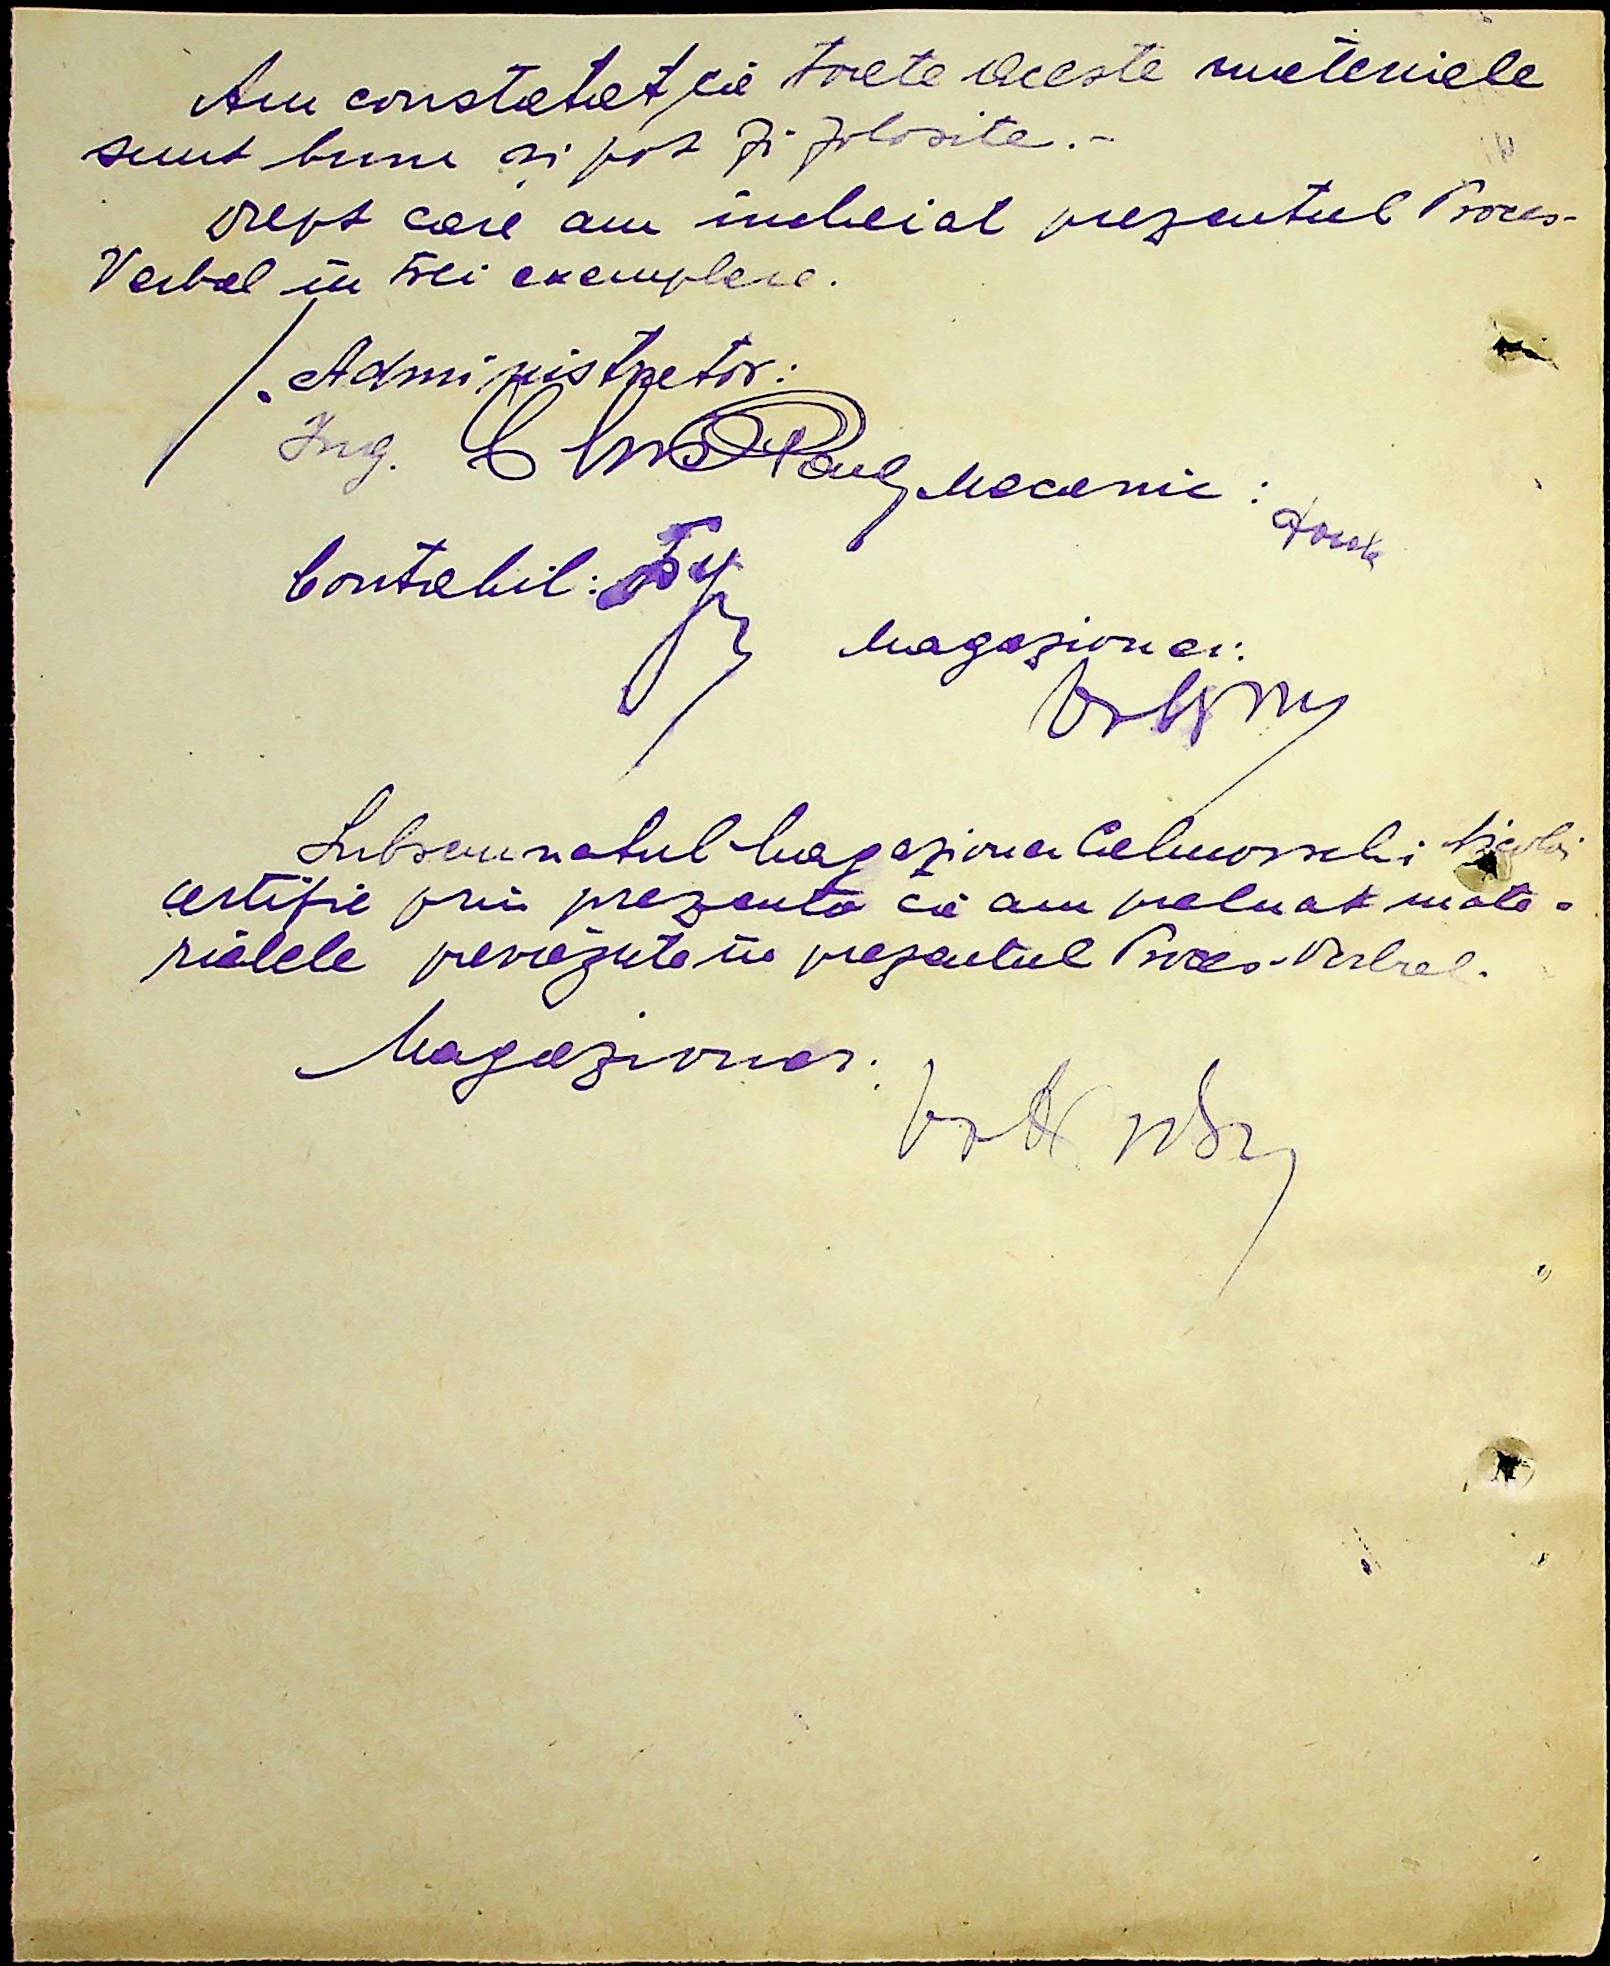 Am constatat, că toate aceste materiale
sunt bune și pot fi folosite.-
Drept care am încheiat prezentul Proces-
Verbal în trei exemplare.
Administrator:
Ing.
Mecanic:
Contabil:
Magazioner:
Subsemnatul Magazioner Nicolai
certific prin prezenta că am preluat mate-
rialele prevăzute în prezentul Proces-Verbal.
Magazioner: